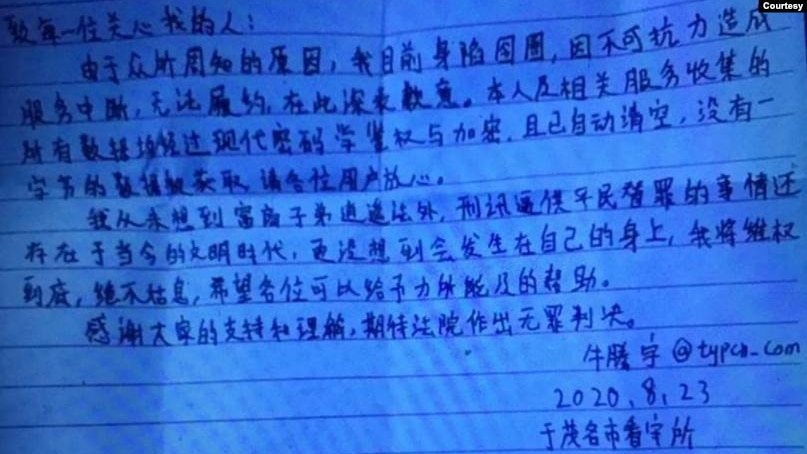 Courtesy
致每一位关心我的人：
由于众所周知的原因，我目前身陷囹圄，因不可抗力造成
服务中断，无法履约，在此深表歉意。本人及相关服务收集的
所有数据均经过现代密码学鉴权与加密，且已自动清空，没有一
字节的数据被获取，请各位用户放心。
我从未想到富商子弟逍遥法外，刑讯逼供平民替罪的事情还
存在于当今的文明时代，更没想到会发生在自己的身上，我将维权
到底，绝不姑息，希望各位可以给予力所能及的帮助。
感谢大家的支持和理解，期待法院作出无罪判决。
牛腾宇@typcn.com
2020.8.23
于茂名市看守所